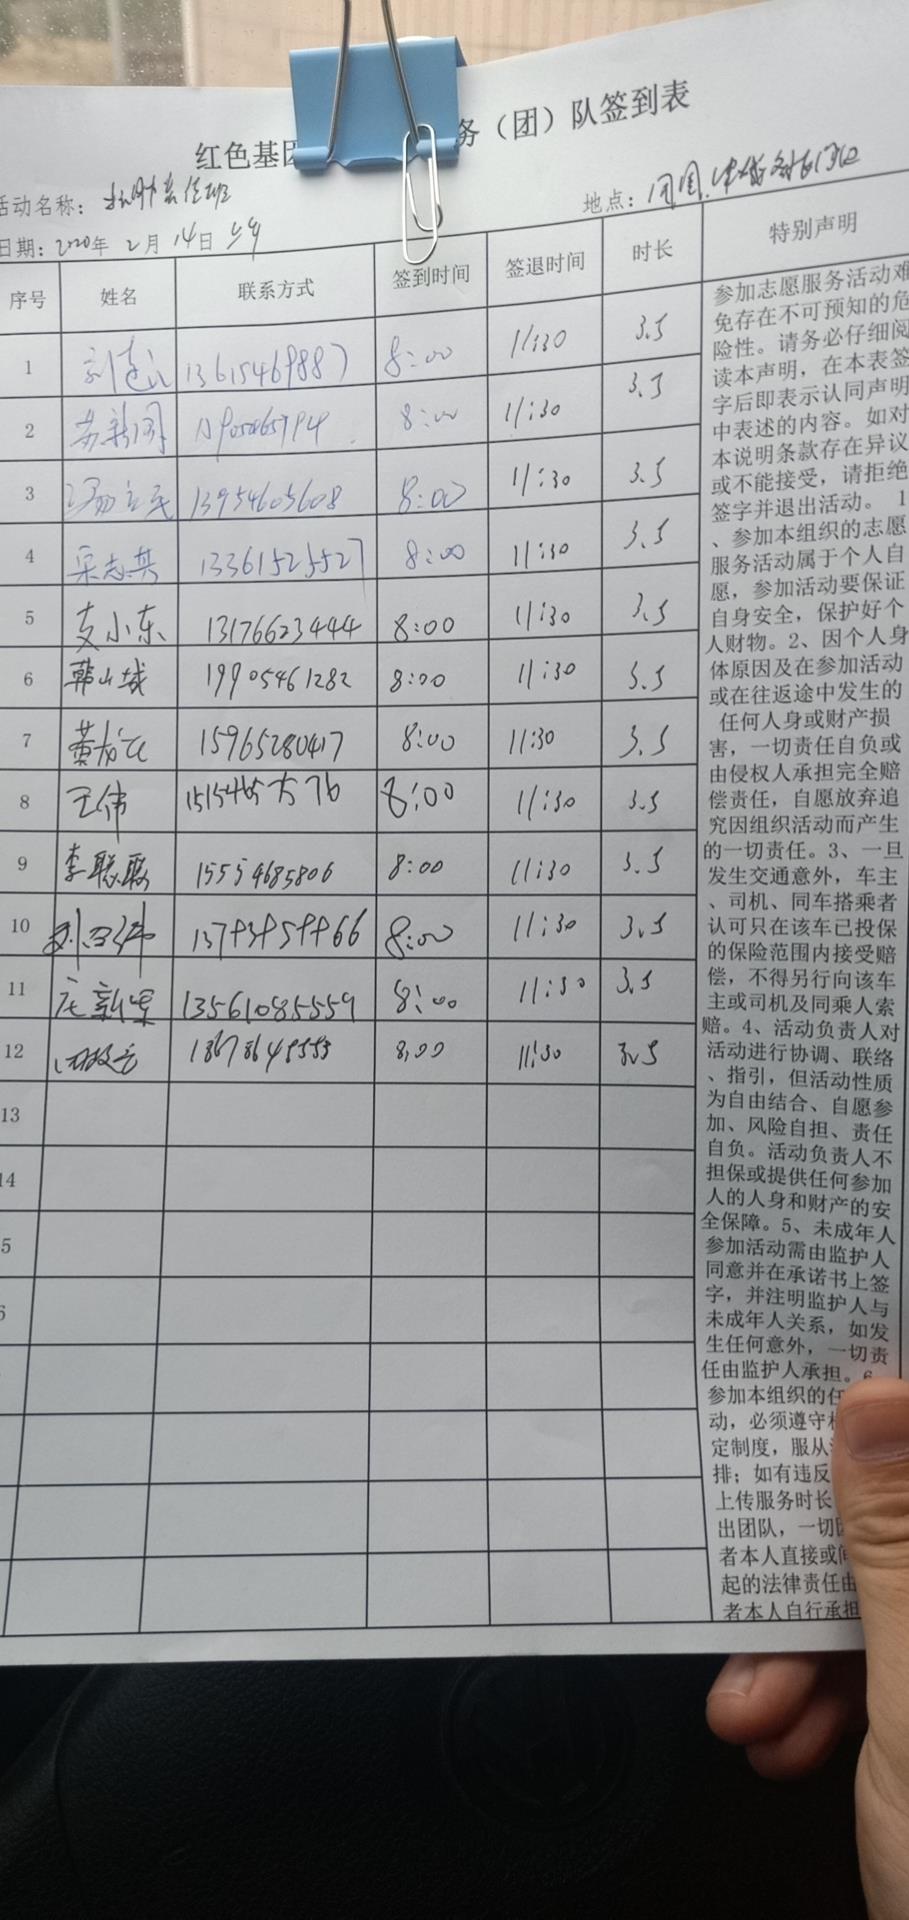 红色基因 务（团）队签到表
活动名称： 地点：
日期：2020年 2月 14日
序号 姓名 联系方式 签到时间 签退时间 时长 特别声明
1 13615469887 8:00 11:30 3.5
2 苏新国 8:00 11:30 3.5
3 13954605608 8:00 11:30 3.5
4 宋志英 13361525527 8:00 11:30 3.5
5 支小东 13176623444 8:00 11:30 3.5
6 韩山城 19905461282 8:00 11:30 3.5
7 15965280417 8:00 11:30 3.5
8 王伟 8:00 11:30 3.5
9 李聪聪 15554685806 8:00 11:30 3.5
10 8:00 11:30 3.5
11 13561085559 8:00 11:30 3.5
12 8:00 11:30 3.5
13
14
5
6
参加志愿服务活动难
免存在不可预知的危
险性。请务必仔细阅
读本声明，在本表签
字后即表示认同声明
中表述的内容。如对
本说明条款存在异议
或不能接受，请拒绝
签字并退出活动。 1
、参加本组织的志愿
服务活动属于个人自
愿，参加活动要保证
自身安全，保护好个
人财物。2、因个人身
体原因及在参加活动
或在往返途中发生的
任何人身或财产损
害，一切责任自负或
由侵权人承担完全赔
偿责任，自愿放弃追
究因组织活动而产生
的一切责任。3、一旦
发生交通意外，车主
、司机、同车搭乘者
认可只在该车已投保
的保险范围内接受赔
偿，不得另行向该车
主或司机及同乘人索
赔。4、活动负责人对
活动进行协调、联络
、指引，但活动性质
为自由结合、自愿参
加、风险自担、责任
自负。活动负责人不
担保或提供任何参加
人的人身和财产的安
全保障。5、未成年人
参加活动需由监护人
同意并在承诺书上签
字，并注明监护人与
未成年人关系，如发
生任何意外，一切责
任由监护人承担。6
参加本组织的任
动，必须遵守
定制度，服从
排；如有违反
上传服务时长
出团队，一切
者本人直接或间
起的法律责任由
者本人自行承担